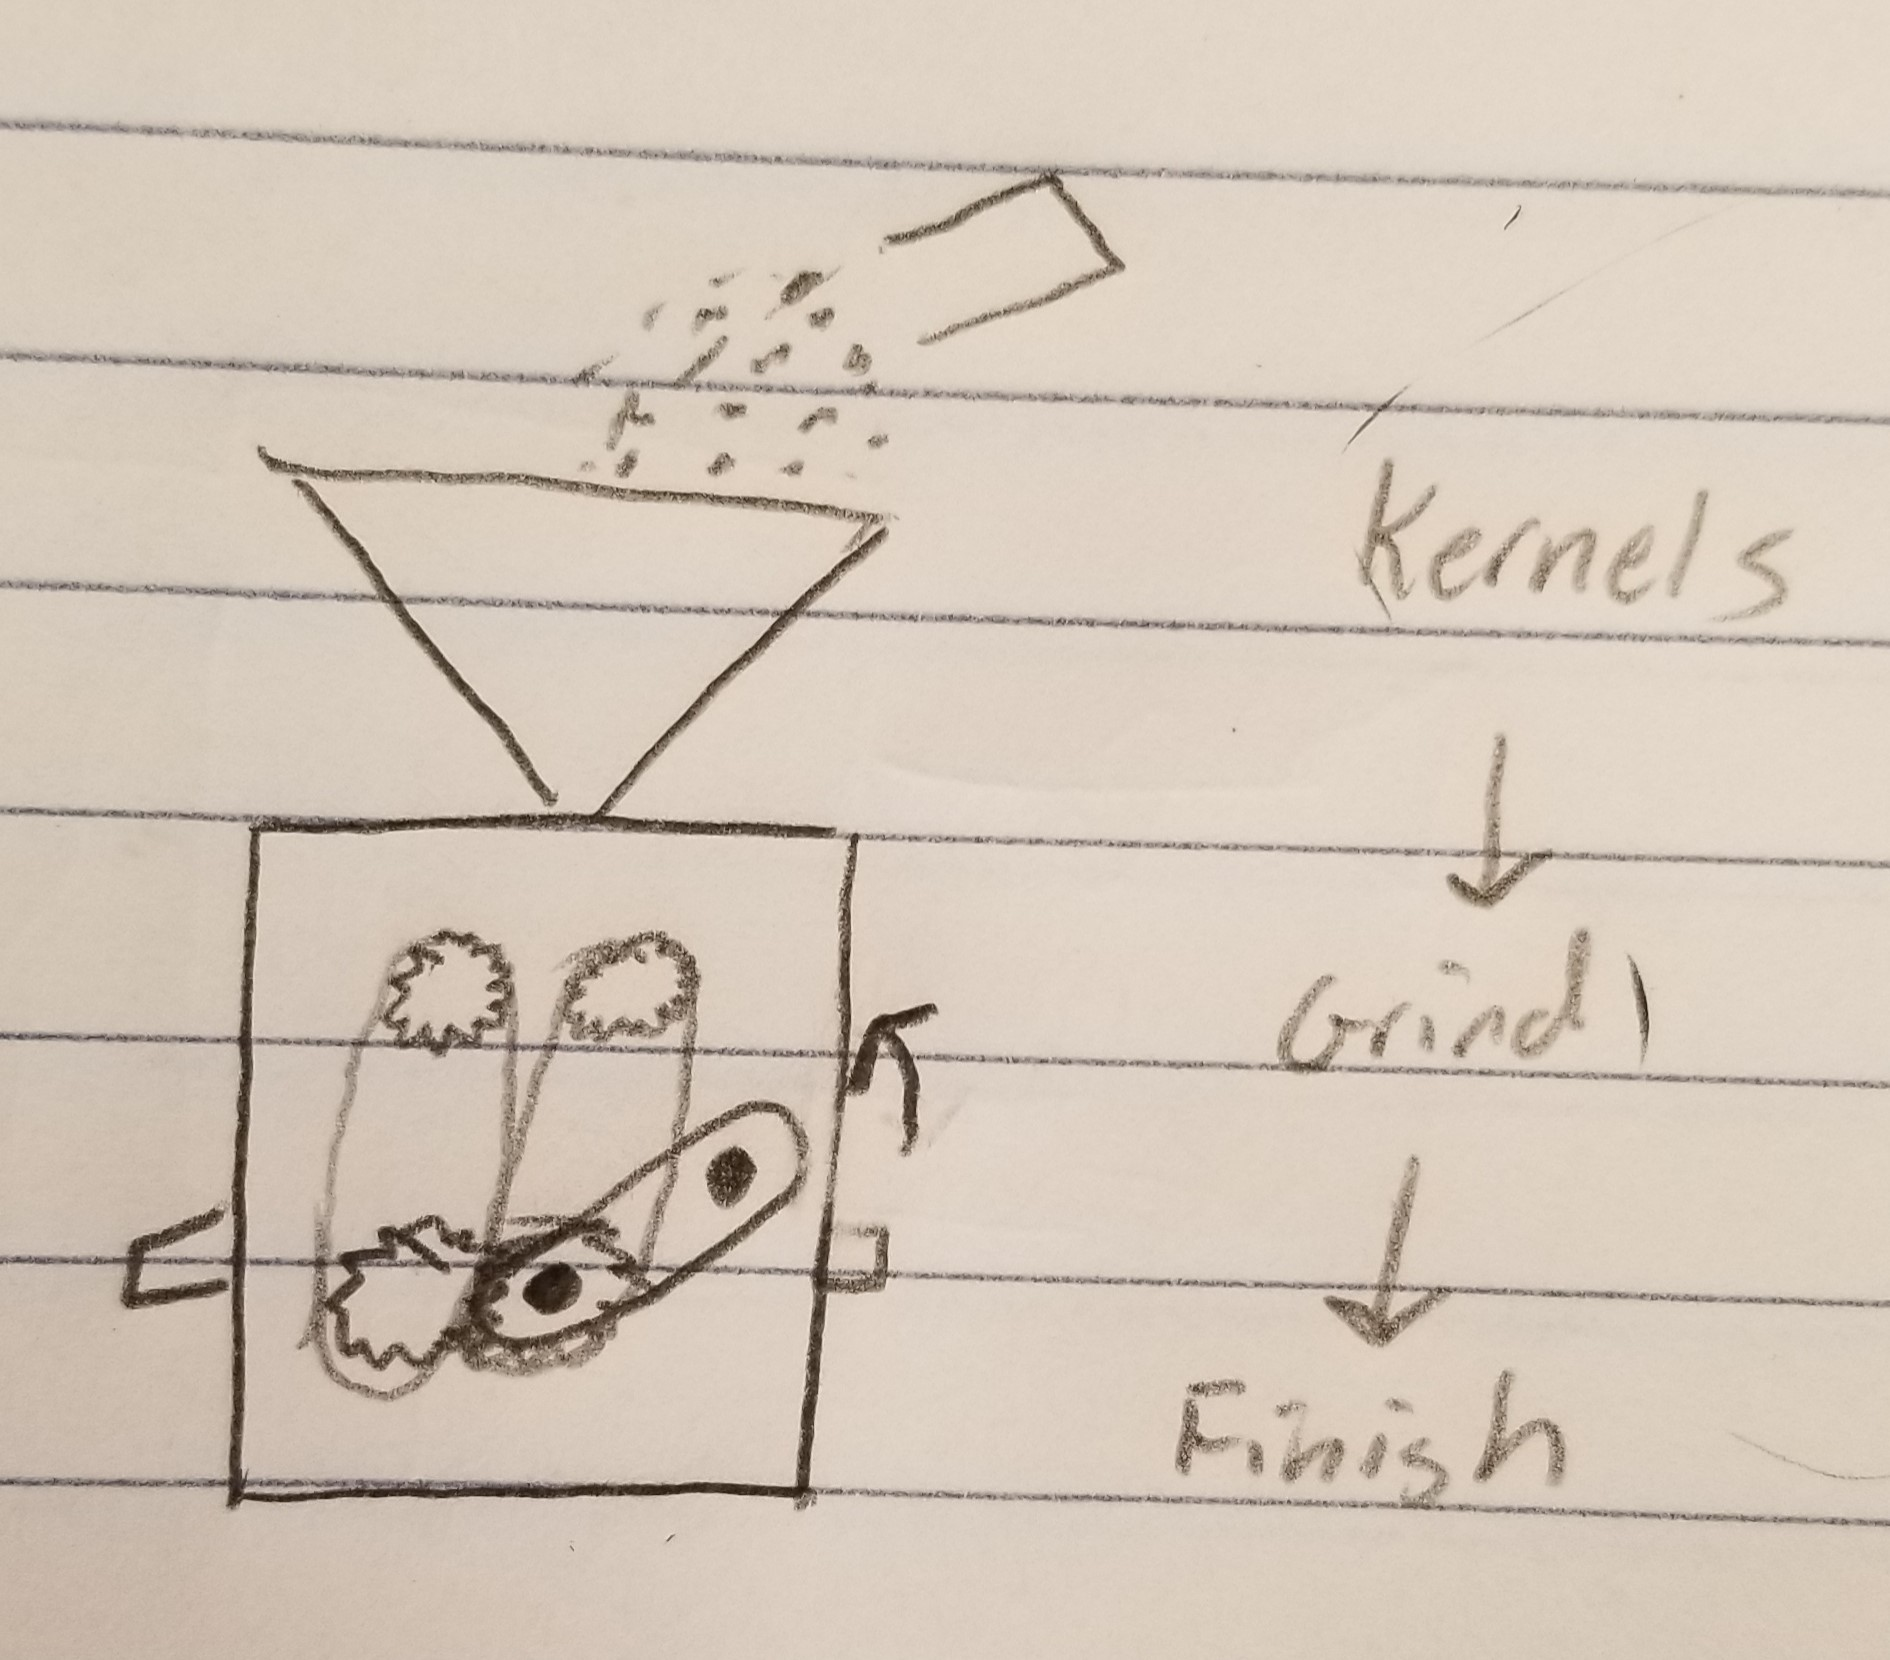 Kernels
Grind
Finish